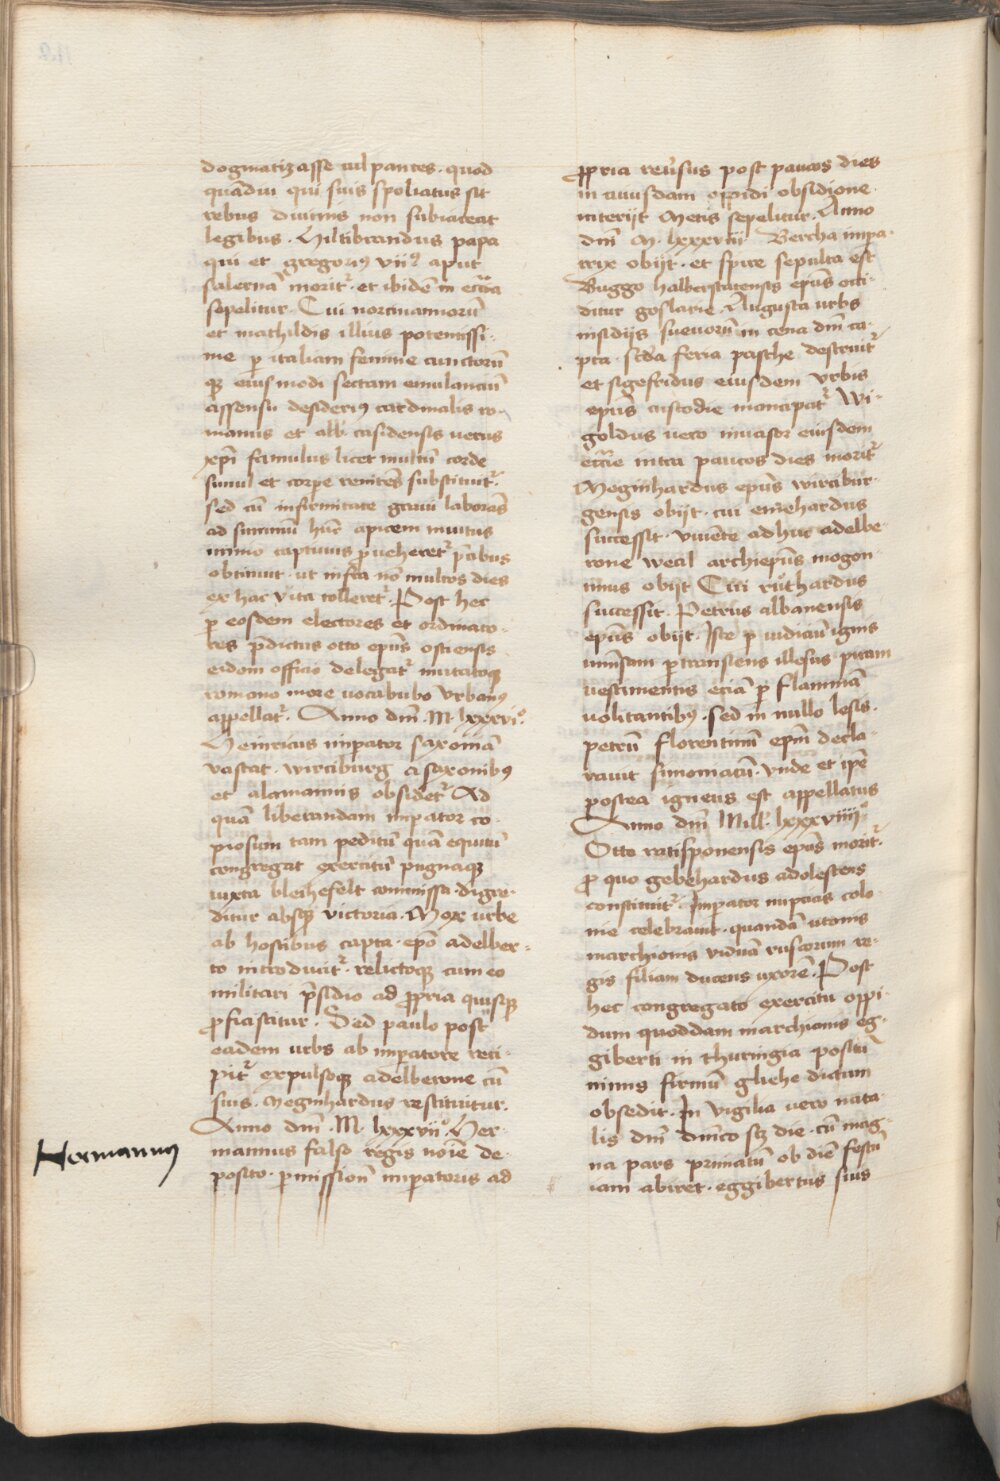 dogmatizasse culpantes. quod
quādiu qui suis spoliatus sit
rebus diuinis non subiaceat
legibus. Hiltibrandus papa
qui et gregoriꝰ viiꝰ aput
salernā morit᷑. et ibidē in eccīa
sepelitur. Cui nortmannorū
et mathildis illius potentissi-
me ꝑ italiam femine cunctorū
qꝫ eiusmodi sectam emulanciū
assensu desideriꝰ cardinalis ro-
manus et abb casidensis uerus
xp̄i famulus licet multū corde
simul et corpe renitēs substituit᷑.
sed cū infirmitate graui laborās
ad summū hūc apicem inuitus
immo captiuus ꝓueheret᷑ p̄cibus
obtinuit. ut infra nō multos dies
ex hac vita tolleret᷑. Post hec
ꝑ eosdem electores et ordinato-
res p̄dictus otto ep̄us ostiensis
eidem officio delegat᷑ mutatoqꝫ
romano more uocabubo Vrbanꝰ
appellat᷑. Anno dn̄i. M. lxxxviᵒ.
Heinricus imp̄ator saxoniā
vastat. wirciburg a saxonibꝰ
et alamannis obsidet᷑ Ad
quā liberandam imp̄ator co-
piosum tam peditū quā equitū
congregat exercitū pugnaqꝫ
iuxta bleihefelt commissa. digre-
ditur absqꝫ victoria. Mox urbe
ab hostibus capta. ep̄o adelber-
to introducit᷑. relictoqꝫ cum eo
militari p̄sidio ad ꝓpria quisqꝫ
ꝓficiscitur. Sed paulo post
eadem urbs ab imperatore reci-
pit᷑ expulsoqꝫ adelberone cū
suis. Meginhardus restituitur.
Anno dn̄i. M. lxxxviiᵒ. Her-
mannus falso regis noīe de-
posito. ꝑmissionē imperatoris ad
Hermannus
ꝓpria reu̓sus post paucos dies
in cuiusdam opidi obsidione
interijt Metis sepelitur. Anno
dn̄i M. lxxxviii Bercha impa-
trix obijt. et spire sepulta est
Buggo halberstatensis ep̄us occi-
ditur goslarie. Augusta urbs
insidijs sueuorū in cena dn̄i ca-
pta. scd̄a feria pasche destruit᷑
et sigefridus eiusdem vrbis
ep̄us custodie mancipat᷑ Wi-
goldus uero inuasor eiusdem
eccīe intra paucos dies morit᷑
Meginhardus ep̄us wircibur-
gensis obijt. cui emehardus
successit. viuēte adhuc adelbe-
rone wecil archiep̄us mogon
tinus obijt Cui růthardus
successit. Petrus albanensis
ep̄us obijt. Iste ꝑ iudiciū ignis
ꝑtransiens illesus
uestimentis eciā ꝑ flammā
uolitantibꝰ. sed in nullo lesis.
petrū florentinū ep̄m decla-
rauit simoniacū. vnde et ip̄e
postea igneus est appellatus
Anno dn̄i Mill. lxxxviiiiᵒ
Otto ratisponensis ep̄us morit᷑.
ꝓ quo gebehardus adolescens
constituit᷑. Imperator nupcias colo-
nie celebrauit. quandā utonis
marchionis viduā ruscorum re-
gis filiam ducens uxorē. Post
hec congregato exercitu oppi-
dum quoddam marchionis eg-
giberti in thuringia positū
nimis firmū gliehe dictum
obsedit. In vigilia uero nata-
lis dn̄i dn̄ico scꝫ die. cū mag-
na pars primatū ob diē festū
iam abiret. eggibertus suis